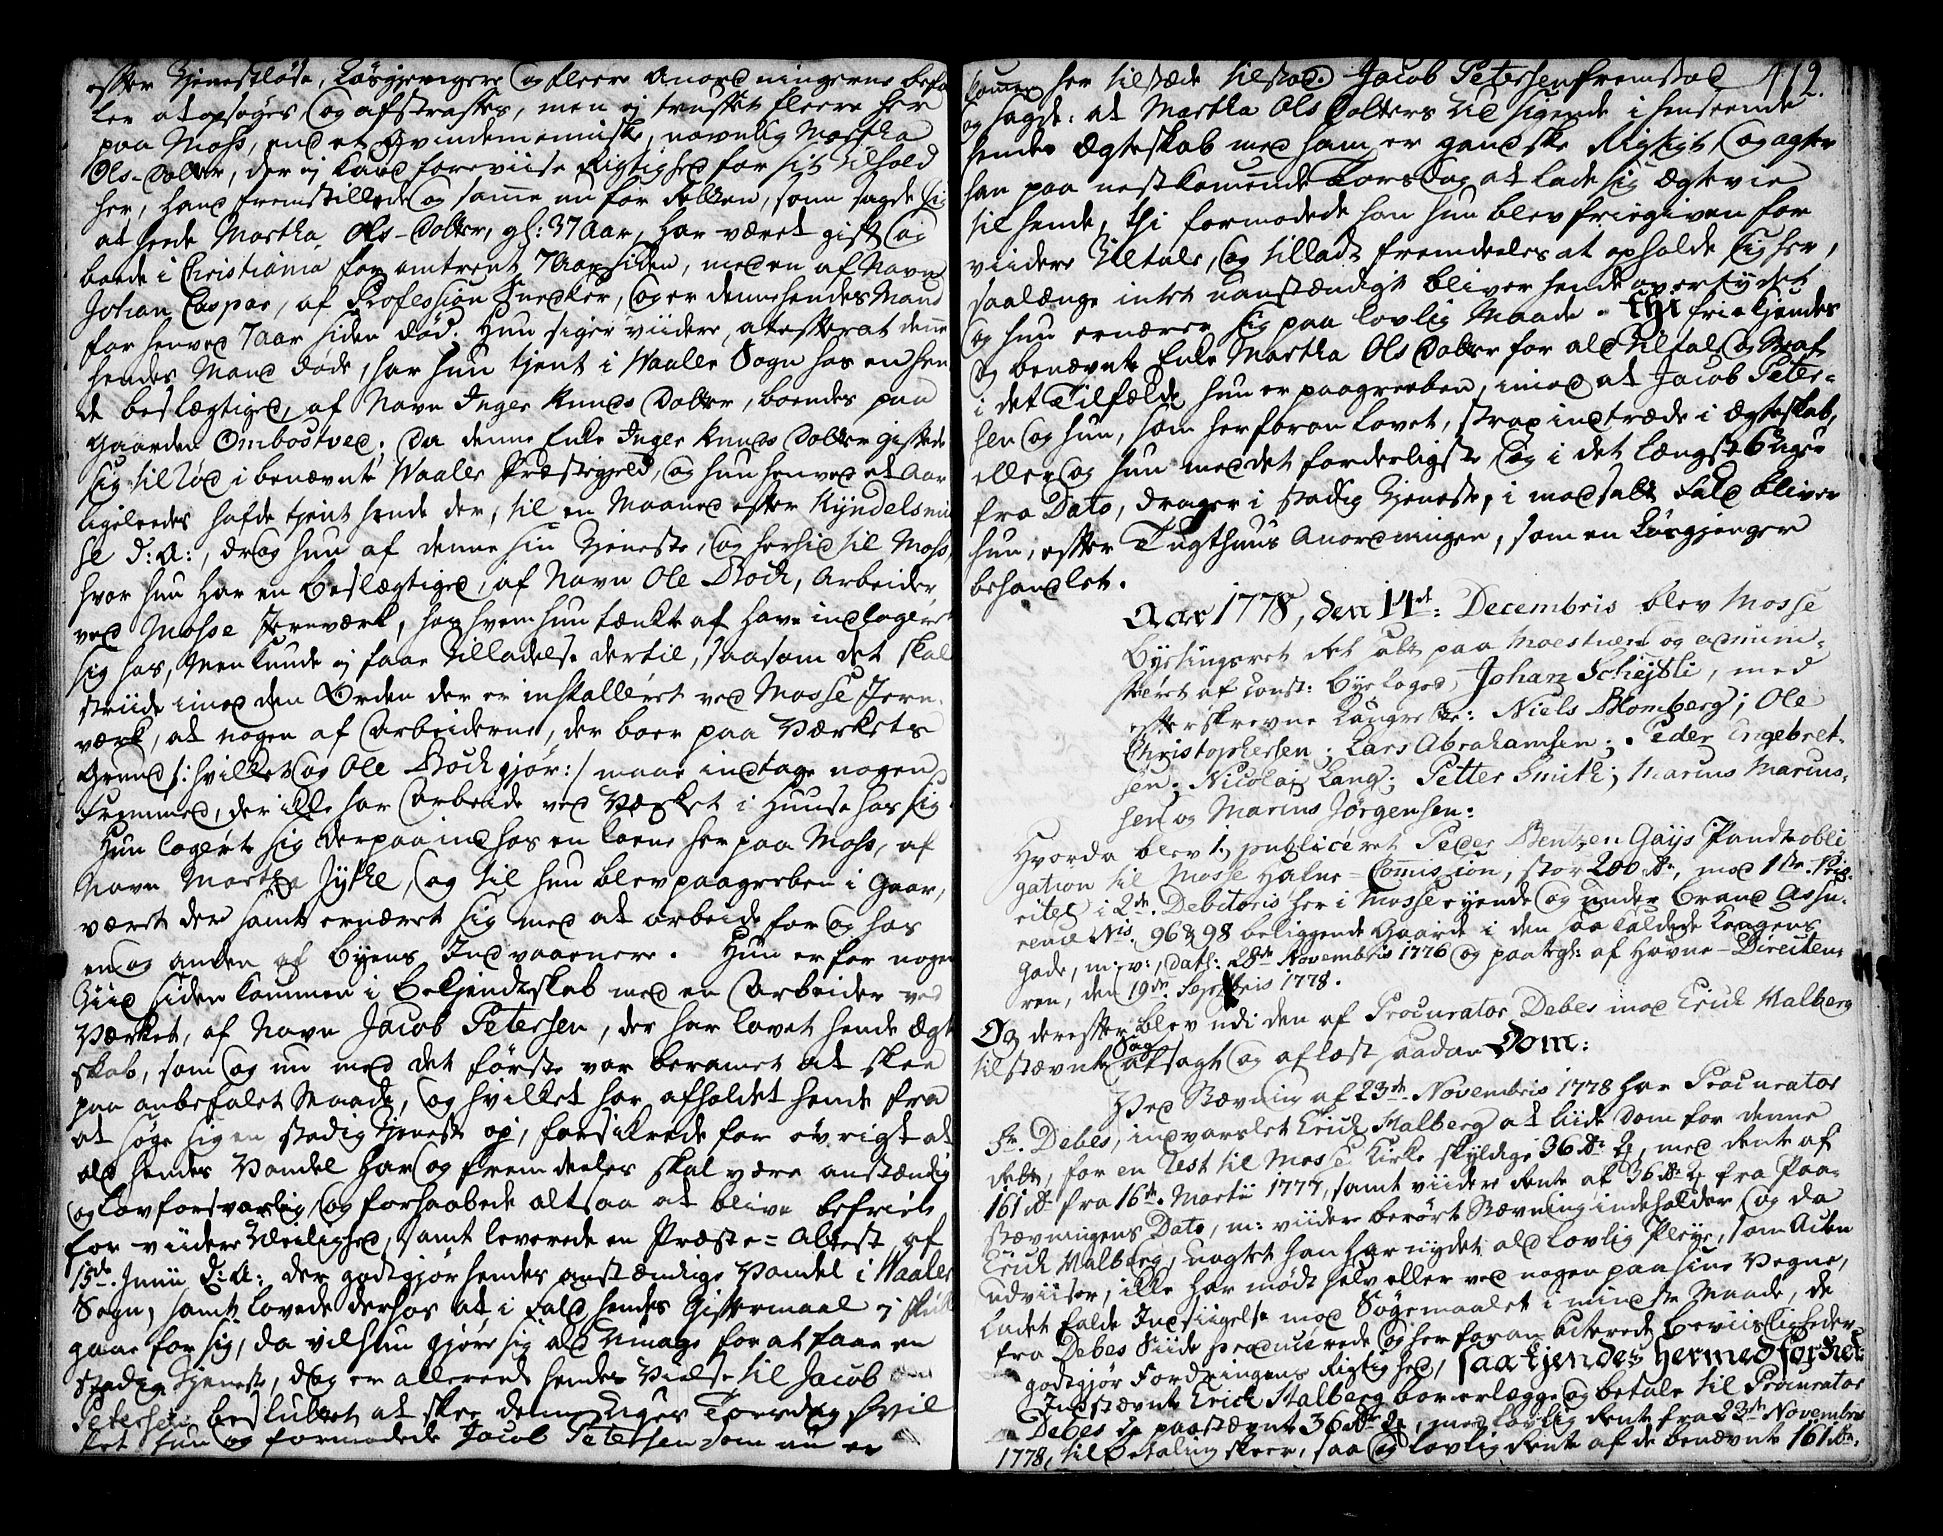 efter Tjenestløse, Løsgjengere og fleere Anordningerne befa-
ler at opsøges og afstraffes, men ej truffet fleere her
paa Moss, end et Qvindemenniske, navnlig Martha
Ols-Datter, der ej kand foreviise Rigtighed for sit Tilhold
her, hand fremstillede og samme nu for Retten, som sagde sig
at heede Martha Ols-Datter, gl: 37 Aar, har været gift og
boede i Christiania for omtrent 7 Aar siden, med en af Navn
Johan Caspar, af Profession Snecker, og er denne hendes Mand
for henved 7 Aar siden død. Hun siger viidere, at efter at denne
hendes Mand døde, har hun tjent i Waaler Sogn hos en hen-
de beslægtiged, af Navn Inger Knuds Datter, boendes paa
Gaarden Ombostved; Da denne Enke Inger Knuds Datter giftede
sig til Rød i benævnte Waaler Præstegield, og hun henved et Aar
ligeleedes hafde tjent hende der, til en Maaned efter Kyndelsmis-
se d: A:, drog hun af denne sin Tjeneste, og herhid til Moss,
hvor hun har en beslægtiged, af Navn Ole Bock, Arbeider
ved Mosse Jernværk, hos hvem hun tænkte at have indlogert
sig hos, Men kunde ej faae Tilladelse dertil, saasom det skal
striide imod den Orden der er installeret ved Mosse Jern-
værk, at nogen af Arbeiderne, der boer paa Værkets
Grund /: hvilket og Ole Bock gjør :/ maae indtage nogen
Fremmed, der ikke har Arbeide ved Værket i Huuse hos sig.
Hun logerte sig derpaa ind hos en Kone her paa Moss, af
Navn Martha Jythe, og til hun blev paagreeben i Gaar,
været der samt ernæret sig med at arbeide for og hos
en og anden af Byens Indvaanere. Hun er for nogen
Tiid siden kommen i Bekjendtskab med en Arbeider ved
Værket, af Navn Jacob Petersen, der har lovet hende Ægte-
skab, som og nu med det første var beramet at skee
paa anbefalet Maade, og hvilket har afholdet hende fra
at søge sig en stadig Tjeneste op, forsikrede for øvrigt at
ald hendes Vandel har og fremdeeles skal være anstændig
og lovforsvarlig og forhaabede altsaa at blive befriet
for viidere Vleilighed, samt leverede en Præste-Attest af
15de Junii d: A: der godtgjør hendes anstændige Vandel i Waaler
Sogn, samt lovede derhos at i Fald hendes Giftermaal ej skulle
gaae for sig, da vil hun gjøre sig ald Umage for at faae en
Stadig Tjeneste, dog er allerede hendes Vielse til Jacob
Petersen besluttet at skee denne Uges Torsdag hvil-
ket hun og formodede Jacob Petersen som nu er
412.
kommen her tilstæde tilstod. Jacob Petersen fremstod
og sagde: at Martha Ols Datters Udsigende i henseende
hendes Ægteskab med ham er gandske Rigtigt, og agter
han paa nestkommende Torsdag at lade sig Ægtevie
til hende, thi formodede han hun blev friegiven for
viidere Tiltale, og tilladt fremdeeles at opholde sig her,
saalænge intet uanstændigt bliver hende overtydet
og hun ernærer sig paa lovlig Maade. Thi friekjendes
og benævnte Enke Martha Ols Datter for ald Tiltal og Straf
i det Tilfælde hun er paagreeben, imod at Jacob Peter-
sen og hun, som herforan lovet, strax indtræde i Ægteskab,
eller og hun med det forderligste og i det længste 6 Uger
fra Dato, drager i stadig Tjeneste, i modsatt Fald bliver
hun, efter Tugthuus Anordningen, som en Løsgjenger
behandlet.
Aar 1778, den 14de Decembris blev Mosse
Byetingsret Rett holt paa Moestuen og admini-
streret af const: Byefoged, Johan Scheitli, med
efterskrevne Laugrette: Niels Blomberg; Ole
Christophersen; Lars Abrahamsen; Peder Engebret-
sen; Nicolaj Lang; Petter Smith; Marius Marius-
sen og Marius Jørgensen:
Hvorda blev 1. publiceret Peder Bentzen Gays Pandtobli-
gation til Mosse Hafne-Commission, stor 200 Rd:, mod 1ste Prio-
ritet i 2de Debitoris her i Mosse eyende og under Brand Assu-
rence Nis. 96 & 98 beliggende Gaarde i den saa kaldede Kongens
Gade, m: v:, dat: 28de Novembris 1776 og paategt: af Havne-Directeu-
ren, den 19de Septbris 1778.
Og derefter blev udi den af Procurator Debes mod Erich Malberg
tilstævnte Sag afsagt og aflæst saadan Dom:
Ved Stævning af 23de Novembris 1778 har Procurator
Fr. Debes, indvarslet Erich Malberg at liide Dom for denne
Rett, for en Rest til Mosse Kirke skyldige 36 Rd 2 ß, med Rente af
161 Rd fra 16de Martii 1777, samt viidere Rente af 36 Rd 2 ß fra Paa-
stævningens Dato, m: viidere berørt Stævning indeholder og da
Erich Malberg, uagtet han har nydet ald Lovlig Pleye, som Acten
udviiser, ikke har mødt selv eller ved nogen paa sine Vegne,
ladet falde Indsiigelse mod Søgemaalet i mindste Maade, de
fra Debes Siide producerede og herforan Citerede Beviisligheder
godtgjør Fordringens Rigtighed, saa kjendes hermed for Ret:
Indstævnte Erich Malberg bør erlægge og betale til Procurator
Debes de paastævnte 36 Rd 2 ß, med lovlig Rente fra 23de Novembris
1778, til Betaling skeer, saa og lovlig Rente af de benævnte 161 Rd: